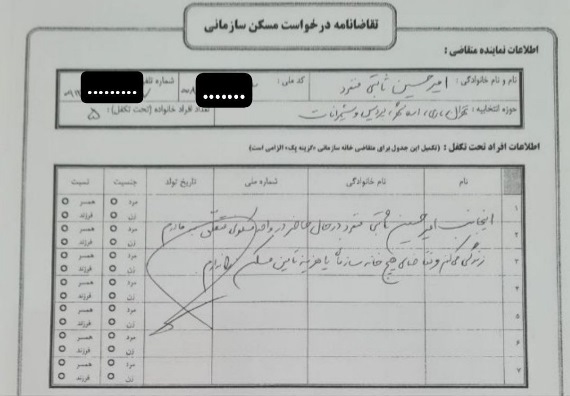 تقاضانامه درخواست مسکن سازمانی
اطلاعات نماینده متقاضی :
نام و نام خانوادگی : امیرحسین ثابتی منفرد کد ملی : شماره تلفن
حوزه انتخابیه : تهران، ری، اسلامشهر، پردیس و شمیرانات تعداد افراد خانواده (تحت تکفل) : ۵
اطلاعات افراد تحت تکفل : (تکمیل این جدول برای متقاضی خانه سازمانی «گزینه یک» الزامی است)
نام نام خانوادگی شماره ملی تاریخ تولد جنسیت نسبت
۱ مرد همسر
زن فرزند
اینجانب امیرحسین ثابتی منفرد در حال حاضر در واحد مسکونی متعلق به مادرم
۲ مرد همسر
زن فرزند
زندگی می‌کنم و تقاضای هیچ خانه سازمانی یا هزینه تامین مسکن را ندارم.
۳ مرد همسر
زن فرزند
۴ مرد همسر
زن فرزند
۵ مرد همسر
زن فرزند
۶ مرد همسر
زن فرزند
۷ مرد همسر
زن فرزند